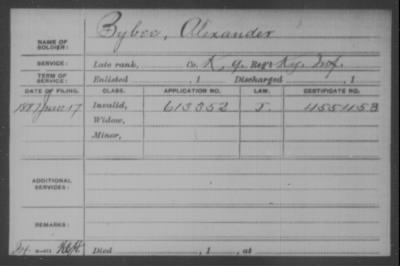 NAME OF SOLDIER: Bybee, Alexander
SERVICE: Late rank, Co. K, 9. Reg't Ky. Inf.
TERM OF SERVICE: Enlisted , 1 Discharged , 1
DATE OF FILING. CLASS. APPLICATION NO. LAW. CERTIFICATE NO.
1887 17 Invalid, 613352 J. 455453
Widow,
Minor,
ADDITIONAL SERVICES:
REMARKS:
Died , 1 , at